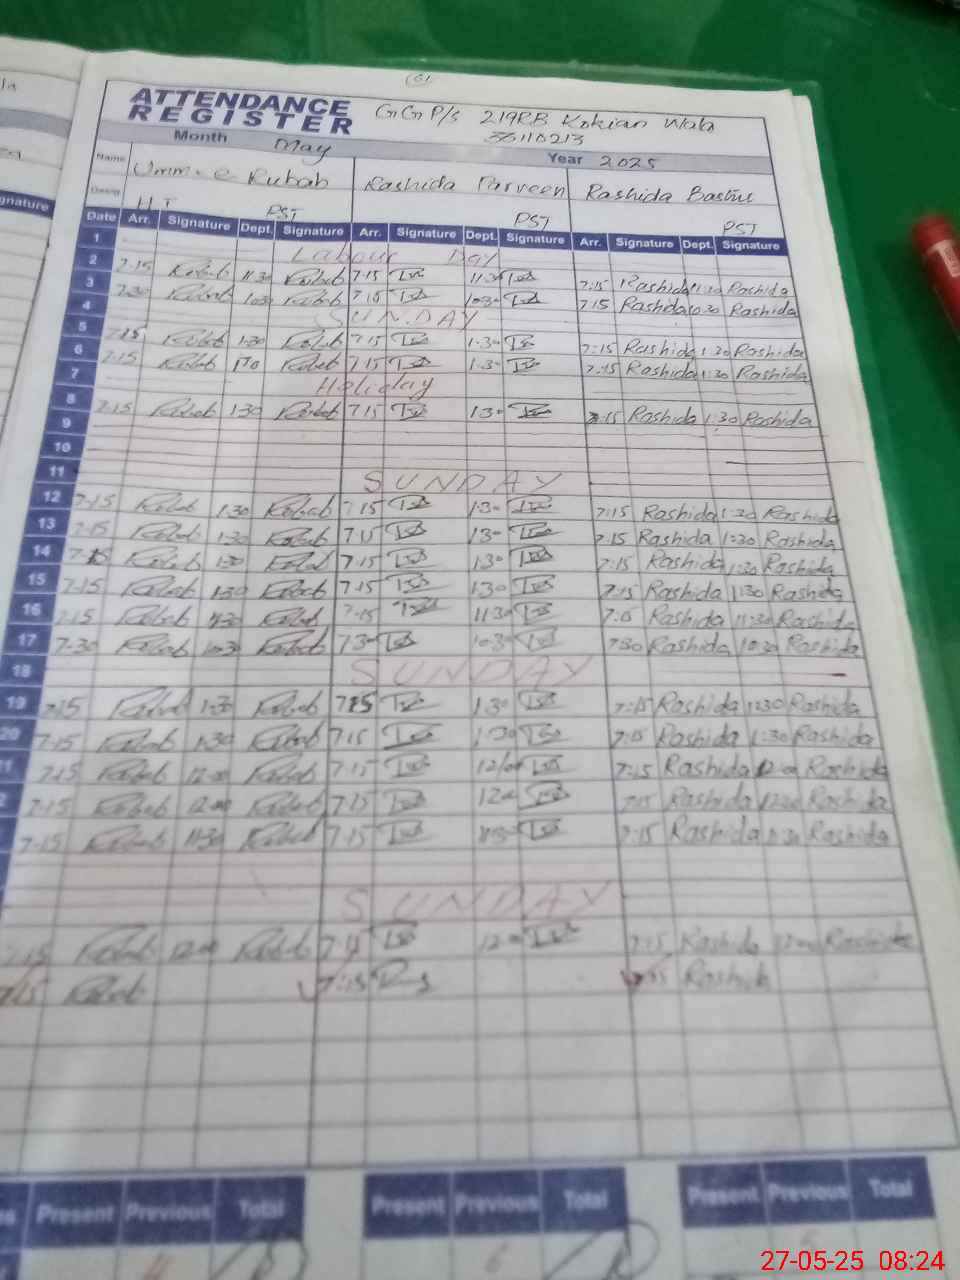 ATTENDANCE REGISTER
GGP/s 219RB Kokian Wala
36110213
Month May Year 2025
Name Umm-e Rubab Rashida Parveen Rashida Bashir
H.T PST PST PST
Date Arr. Signature Dept. Signature Arr. Signature Dept. Signature Arr. Signature Dept. Signature
1 Labour Day
2 7:15 Rubab 11:30 Rubab 7:15 11:30 7:15 Rashida 11:30 Rashida
3 7:30 Rubab 10:30 Rubab 7:15 10:30 7:15 Rashida 10:30 Rashida
4 SUNDAY
5 7:15 Rubab 1:30 Rubab 7:15 1:30 7:15 Rashida 1:30 Rashida
6 7:15 Rubab Rubab 7:15 1:30 7:15 Rashida 1:30 Rashida
7 Holiday
8 7:15 Rubab 1:30 Rubab 7:15 1:30 7:15 Rashida 1:30 Rashida
9
10
11 SUNDAY
12 7:15 Rubab 1:30 Rubab 7:15 1:30 7:15 Rashida 1:30 Rashida
13 7:15 Rubab 1:30 Rubab 7:15 1:30 7:15 Rashida 1:30 Rashida
14 7:15 Rubab 1:30 Rubab 7:15 1:30 7:15 Rashida 1:30 Rashida
15 7:15 Rubab 1:30 Rubab 7:15 1:30 7:15 Rashida 1:30 Rashida
16 7:15 Rubab 11:30 Rubab 7:15 11:30 7:15 Rashida 11:30 Rashida
17 7:30 Rubab 10:30 Rubab 7:30 10:30 7:30 Rashida 10:30 Rashida
18 SUNDAY
19 7:15 Rubab 1:30 Rubab 7:15 1:30 7:15 Rashida 1:30 Rashida
20 7:15 Rubab 1:30 Rubab 7:15 1:30 7:15 Rashida 1:30 Rashida
7:15 Rubab 12:00 Rubab 7:15 12:00 7:15 Rashida 12:00 Rashida
7:15 Rubab 12:00 Rubab 7:15 12:00 7:15 Rashida 12:00 Rashida
7:15 Rubab 11:30 Rubab 7:15 11:30 7:15 Rashida 11:30 Rashida
SUNDAY
7:15 Rubab 12:00 Rubab 7:15 12:00 7:15 Rashida 12:00 Rashida
7:15 Rubab 7:15 7:15 Rashida
Present Previous Total Present Previous Total Present Previous Total
27-05-25 08:24